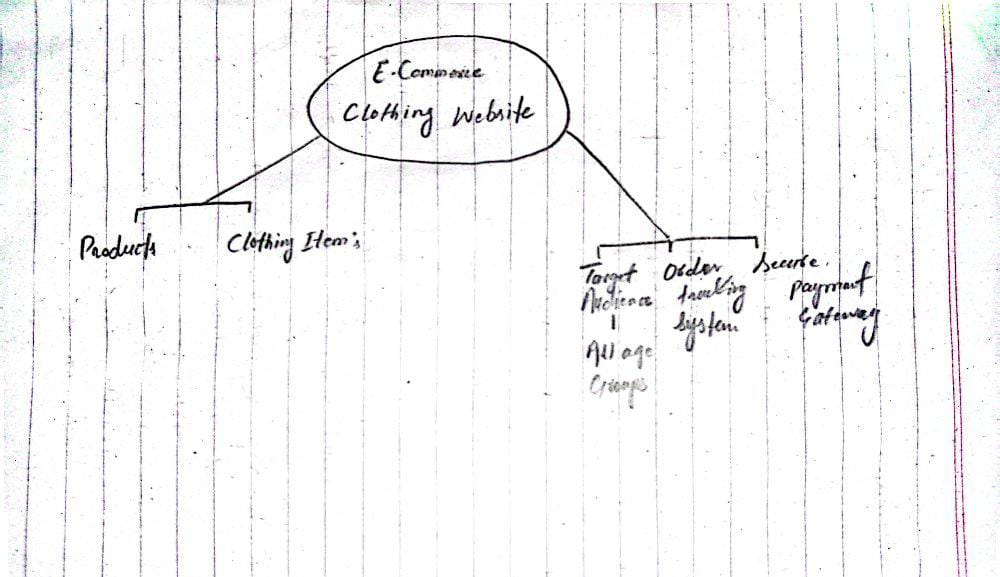 E-Commerce
Clothing Website
Products
Clothing Item's
Target
Audience
All age
Groups
Order
tracking
System
Secure.
Payment
Gateway